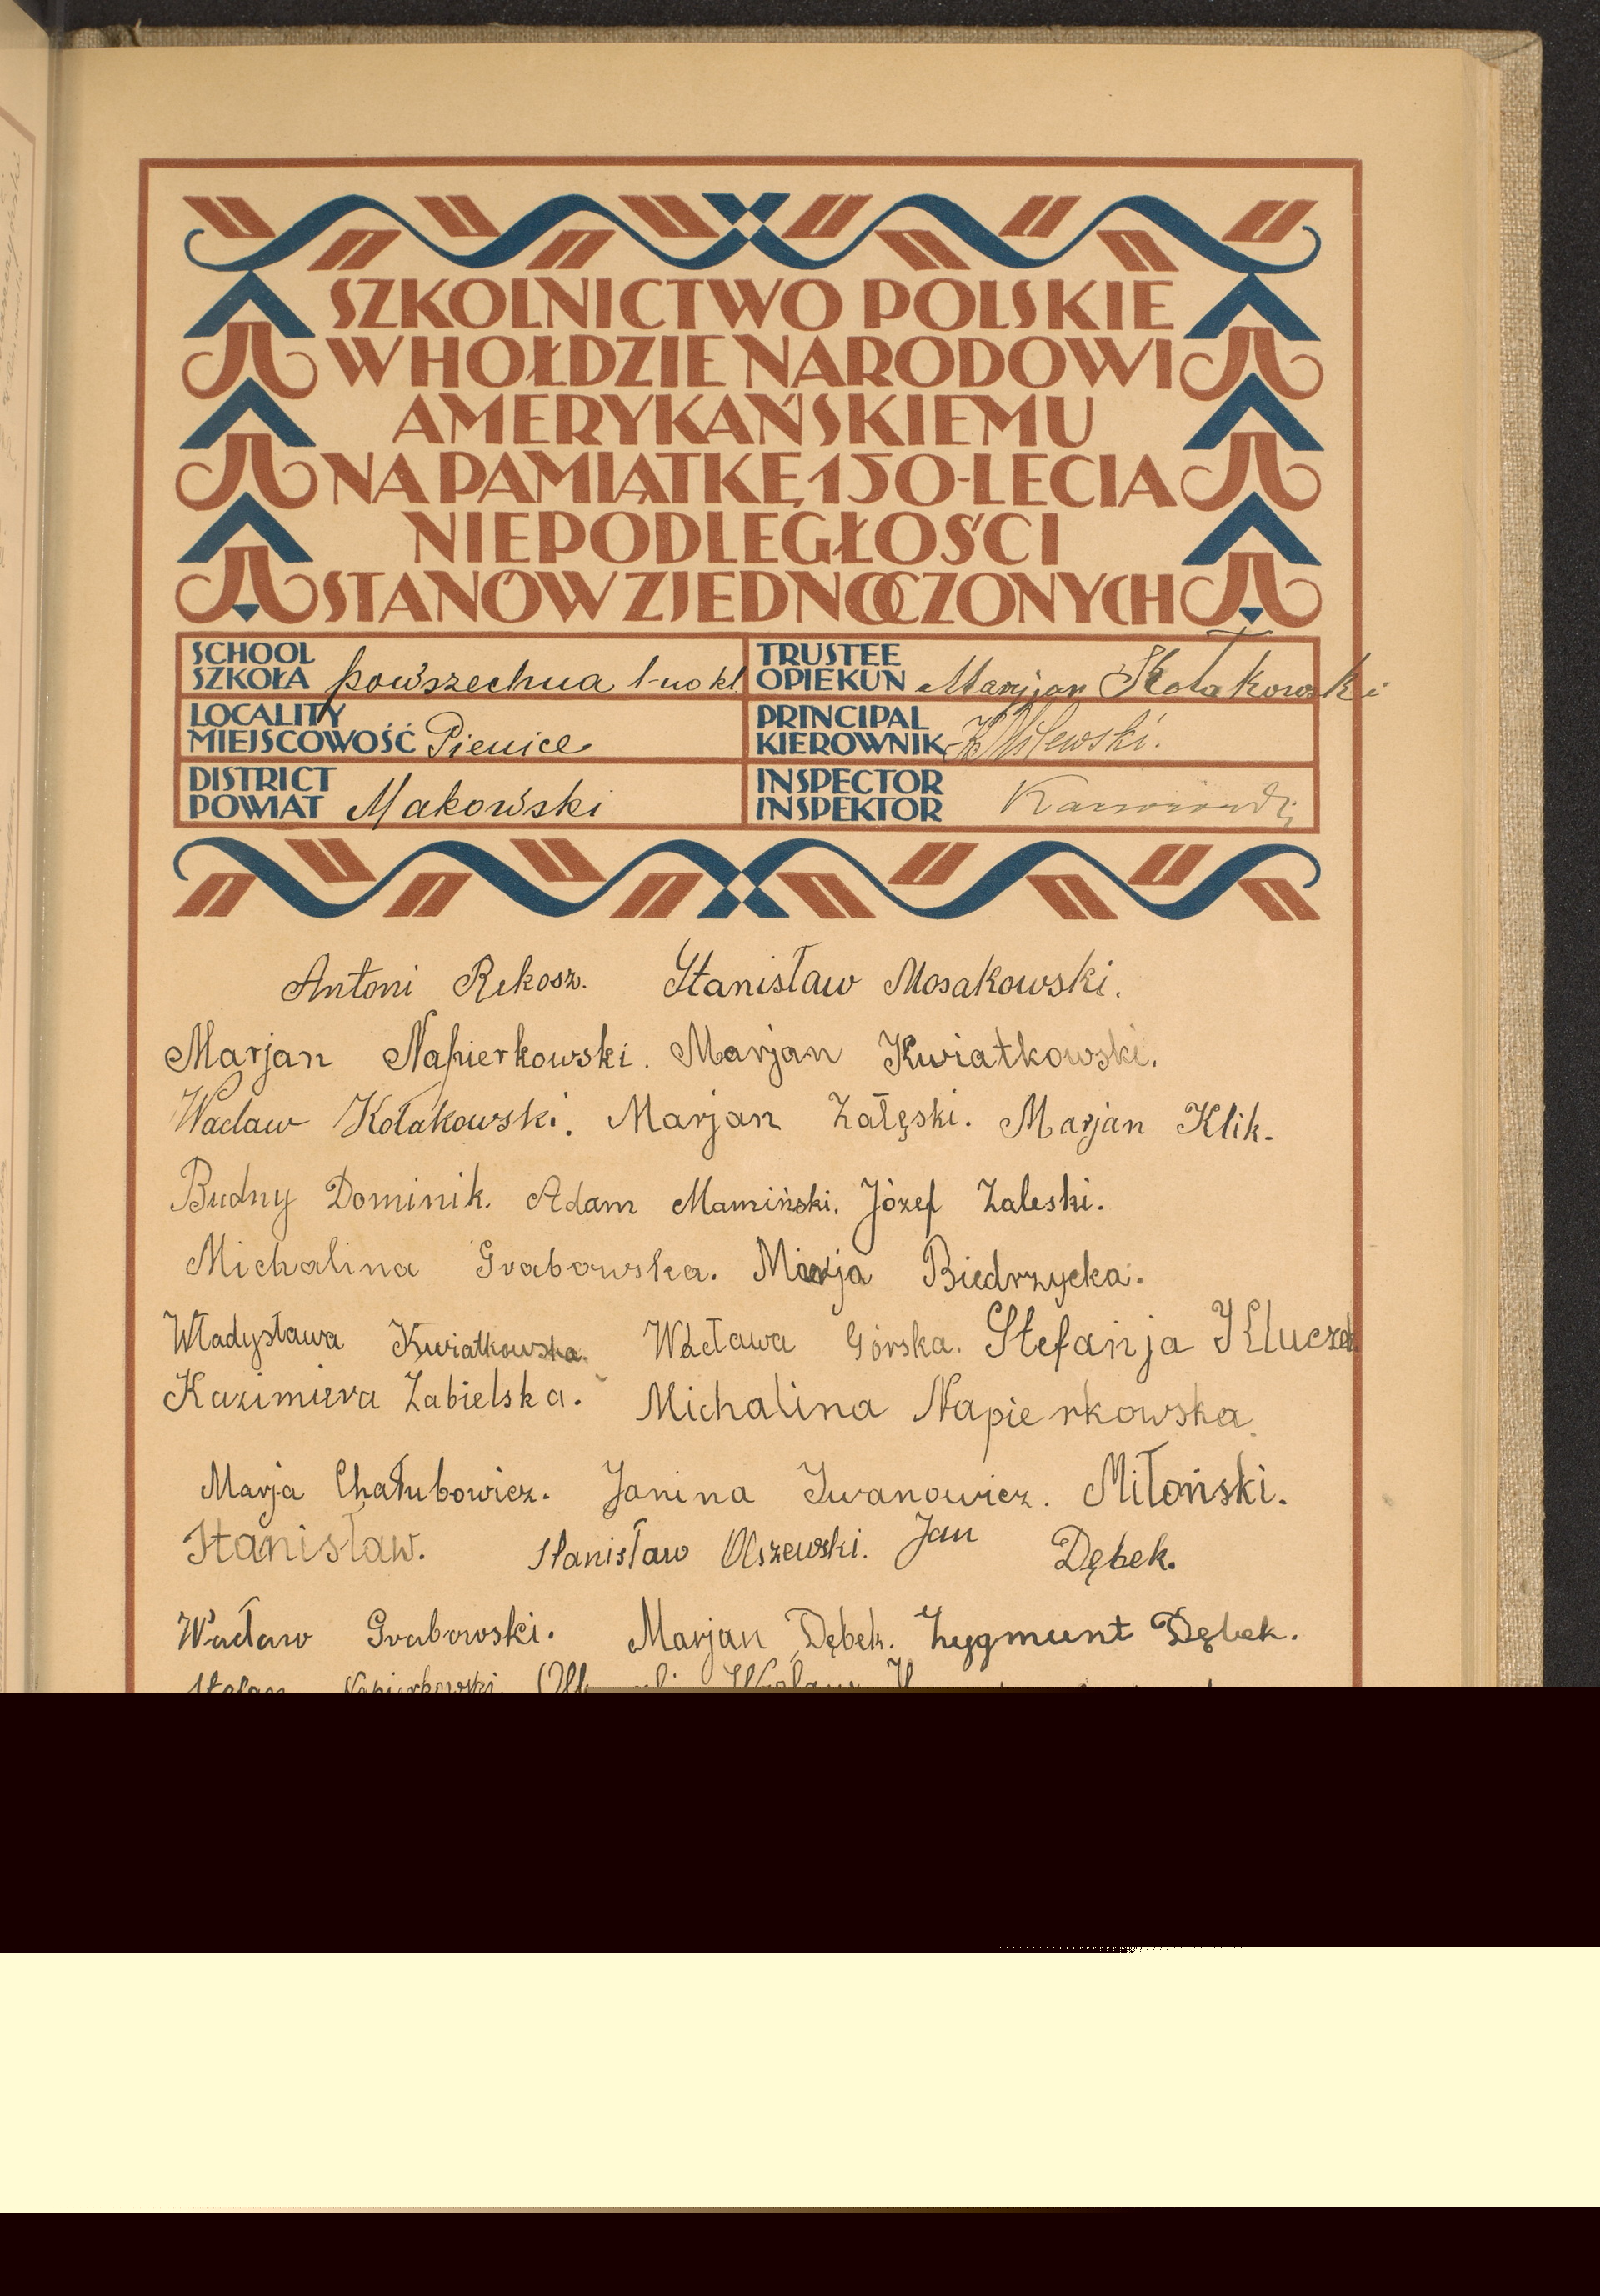 SZKOLNICTWO POLSKIE
W HOŁDZIE NARODOWI
AMERYKAŃSKIEMU
NA PAMIĄTKĘ 150-LECIA
NIEPODLEGŁOŚCI
STANÓW ZJEDNOCZONYCH
SCHOOL
SZKOŁA powszechna 1-no kl
TRUSTEE
OPIEKUN Marjan Kołakowski
LOCALITY
MIEJSCOWOŚĆ Pienice
PRINCIPAL
KIEROWNIK Milewski.
DISTRICT
POWIAT Makowski
INSPECTOR
INSPEKTOR
Antoni Rekosz. Stanisław Mosakowski.
Marjan Napierkowski. Marjan Kwiatkowski.
Wacław Kołakowski. Marjan Załęski. Marjan Klik.
Budny Dominik. Adam Mamiński. Józef Zaleski.
Michalina Grabowska. Marja Biedrzycka.
Władysława Kwiatkowska. Wacława Górska. Stefanja
Kazimiera Zabielska. Michalina Napierkowska.
Marja Chałubowicz. Janina Iwanowicz. Miłoński.
Stanisław. Stanisław Olszewski. Jan Dębek.
Wacław Grabowski. Marjan Dębek. Zygmunt Dębek.
Stefan Napierkowski. Wacław